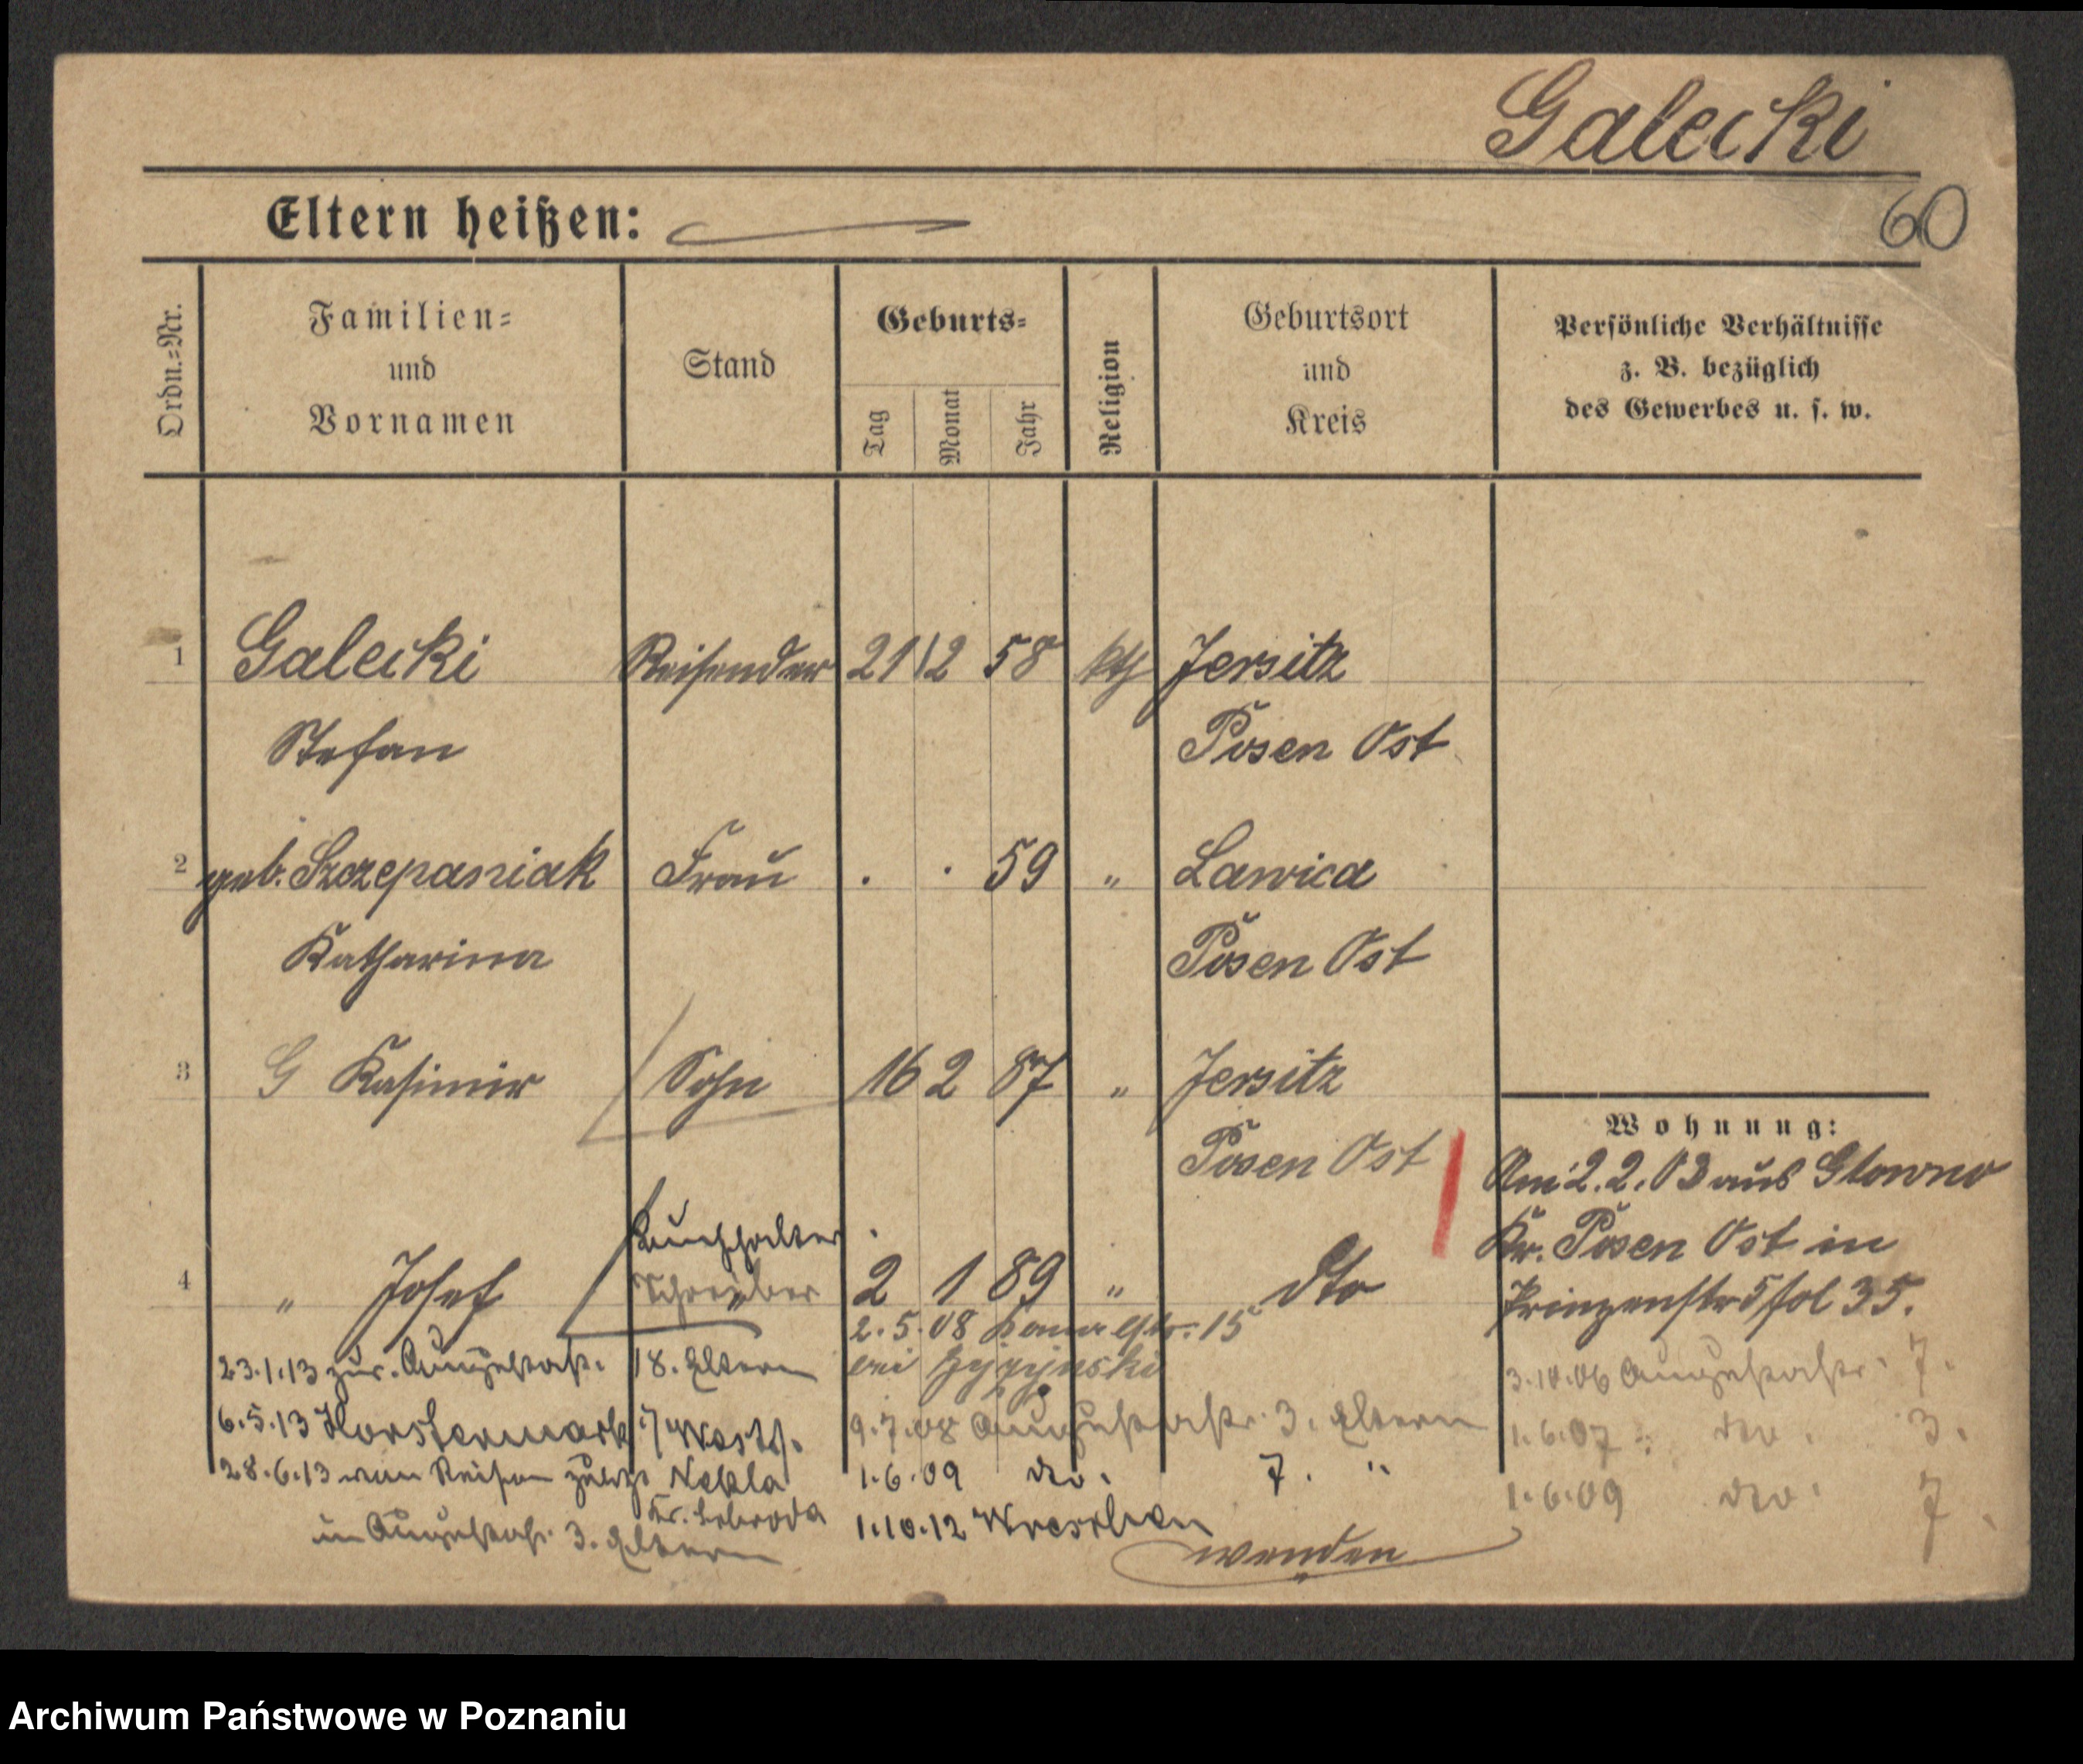 Galecki
Eltern heißen:
60
Ordn.=Nr.
Familien=
und
Vornamen
Stand
Geburts=
Tag
Monat
Jahr
Religion
Geburtsort
und
Kreis
Persönliche Verhältnisse
z. B. bezüglich
des Gewerbes u. s. w.
1 Galecki Reisender 21 12 58 kth Jersitz
Stefan Posen Ost
2 geb. Szczepaniak Frau . . 59 " Lawica
Katharina Posen Ost
3 G Kasimir Sohn 16 2 87 " Jersitz
Posen Ost
Wohnung:
Am 2.2.03 aus Glowno
Kr. Posen Ost in
Prinzenstr 5 fol 35.
Buchhalter
4 " Josef Schreiber 2 1 89 " dto
2.5.08 15
bei
3.10.06 Augustastr. 7.
1.6.07 do. 3.
1.6.09 do. 7
23.1.13 zur. Augustastr. 18. Eltern
6.5.13 Horstermark i/ Westf.
9.7.08 Augustastr. 3. Eltern
28.6.13 von Reisen zurück Nekla
Kr. Schroda
1.6.09 do. 7. "
in Augustastr. 3. Eltern
1.10.12 Wreschen
wenden
Archiwum Państwowe w Poznaniu